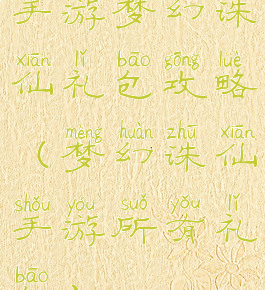 手游梦幻诛
xiān lǐ bāo gōng lüè
仙礼包攻略
mèng huàn zhū xiān
(梦幻诛仙
shǒu yóu suǒ yǒu lǐ
手游所有礼
bāo